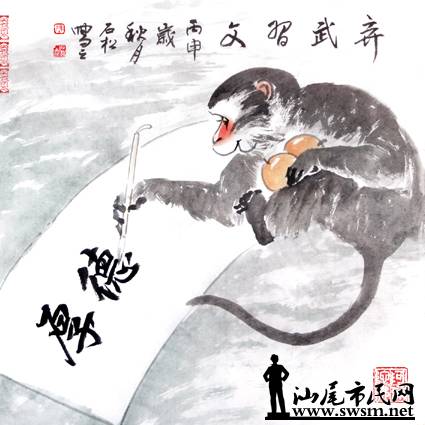 弃武習文
丙申
歲
秋月
石松
厚德
汕尾市民网
www.swsm.net